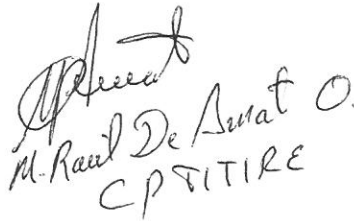 M. Raúl De Amat O.
CP TITIRE